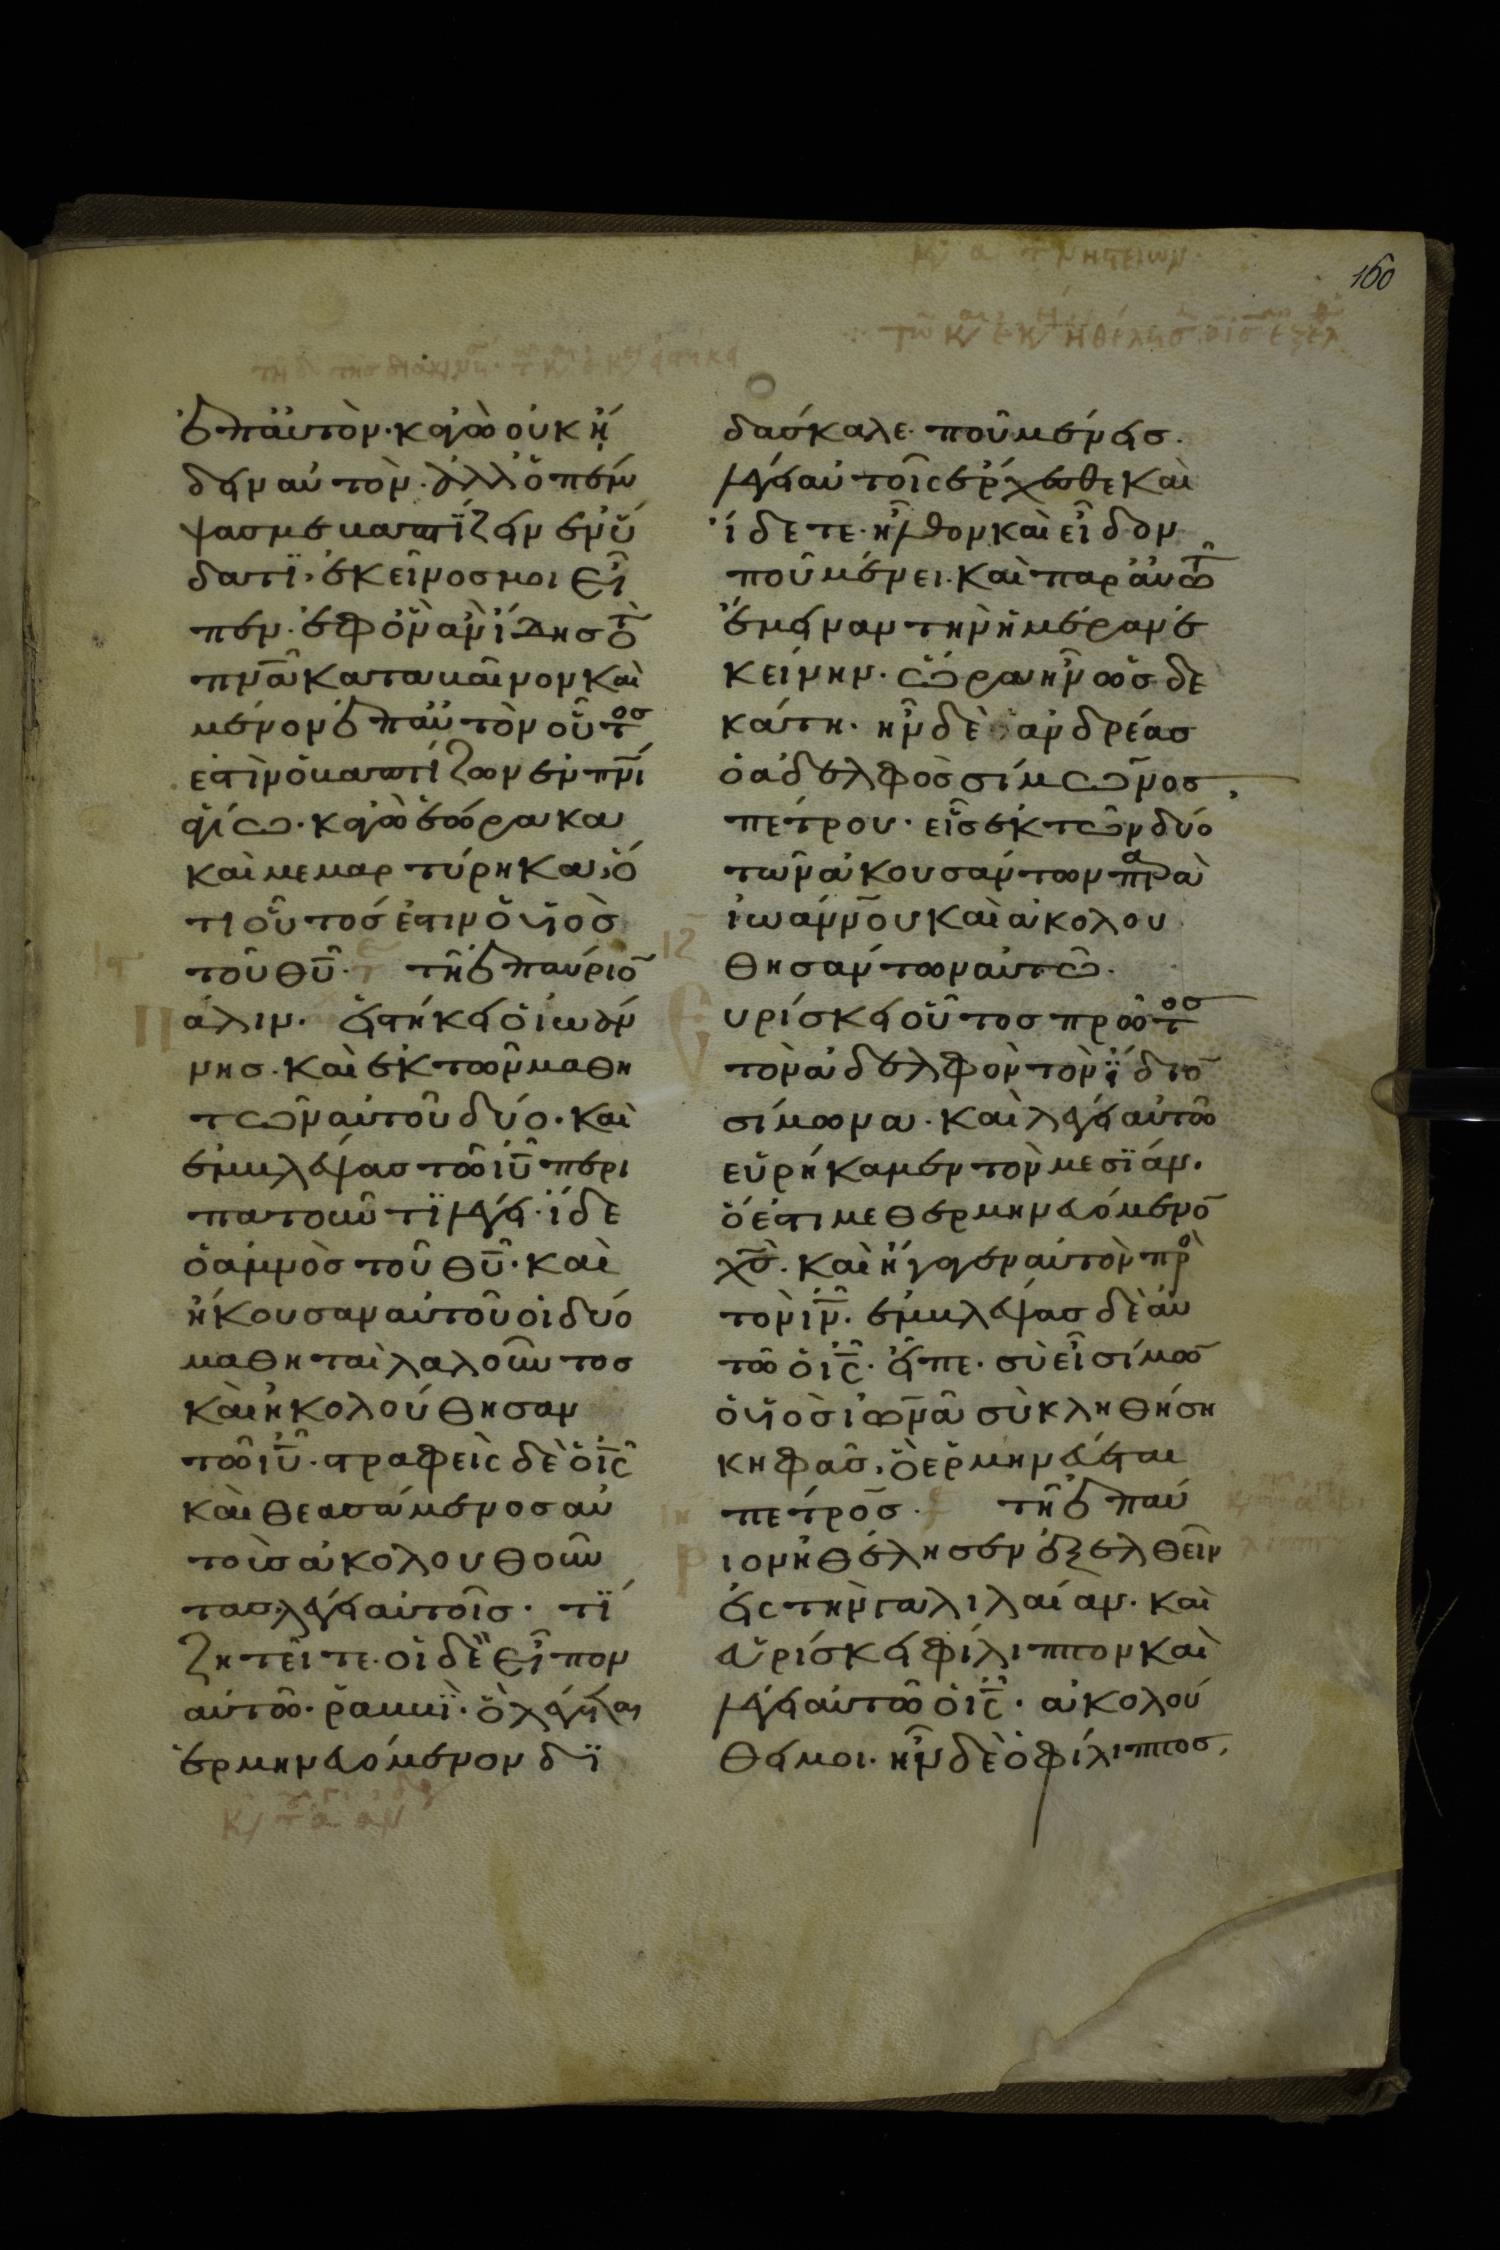 160
ἐπ' αὐτὸν· κἀγὼ οὐκ ᾔ
δειν αὐτὸν· ἀλλ' ὁ πέμ
ψας με βαπτίζειν ἐν ὕ
δατι, ἐκεῖνός μοι εἶ
πεν· ἐφ' ὃν ἂν ἴδῃς τὸ
πν̅α καταβαῖνον καὶ
μένον ἐπ' αὐτὸν οὗτος
ἐστὶν ὁ βαπτίζων ἐν πν̅ι
ἁγίω· κἀγὼ ἑώρακα
καὶ μεμαρτύρηκα, ὅ
τι οὗτός ἐστιν ὁ υἱὸς
τοῦ θυ̅· τῆ ἐπαύριο̅
πάλιν· εἱστήκει ὁ ἰωάν
νης· καὶ ἐκ τῶν μαθη
τῶν αὐτοῦ δύο· καὶ
ἐμβλέψας τῶ ιυ̅ περι
πατοῦντι λέγει· ἴδε
ὁ ἀμνὸς τοῦ θυ̅· καὶ
ἤκουσαν αὐτοῦ οἱ δύο
μαθηταὶ λαλοῦντος
καὶ ἠκολούθησαν
τῶ ιυ̅· στραφεὶς δὲ ὁ ις̅
καὶ θεασάμενος αὐ
τοὺς ἀκολουθοῦν
τας λέγει αὐτοῖς· τί
ζητεῖτε· οἱ δὲ εἶπον
αὐτῶ· ῥαββὶ· ὃ λέγεται
ἑρμηνευόμενον δι
δάσκαλε· ποῦ μένεις·
λέγει αὐτοῖς ἔρχεσθε καὶ
ἴδετε· ἦλθον καὶ εἶδον
ποῦ μένει· καὶ παρ' αὐτῶ
ἔμειναν τὴν ἡμέραν ἐ
κείνην· ὥρα ἦν ὡς δε
κάτη· ἦν δὲ ἀνδρέας
ὁ ἀδελφὸς σίμωνος
πέτρου· εἷς ἐκ τῶν δύο
τῶν ἀκουσάντων παρὰ
ἰωάννου καὶ ἀκολου
θησάντων αὐτῶ·
Εὑρίσκει οὗτος πρῶτος
τὸν ἀδελφὸν τὸν ἴδιο̅
σίμωνα· καὶ λέγει αὐτῶ
εὑρήκαμεν τὸν μεσίαν·
ὅ ἐστι μεθερμηνευόμενο̅
χς̅· καὶ ἤγαγεν αὐτὸν πρὸ
τὸν ιν̅· ἐμβλέψας δὲ αὐ
τῶ ὁ ις̅· εἶπε· σὺ εἶ σίμω̅
ὁ υἱὸς ἰωνᾶ σὺ κληθήση
κηφᾶς, ὃ ἑρμηνεύεται
πέτρος· τῆ ἐπαύ
ριον ἠθέλησεν ἐξελθεῖν
εἰς τὴν γαλιλαίαν· καὶ
εὑρίσκει φίλιππον καὶ
λέγει αὐτῶ ὁ ις̅· ἀκολού
θει μοι· ἦν δὲ ὁ φίλιππος,